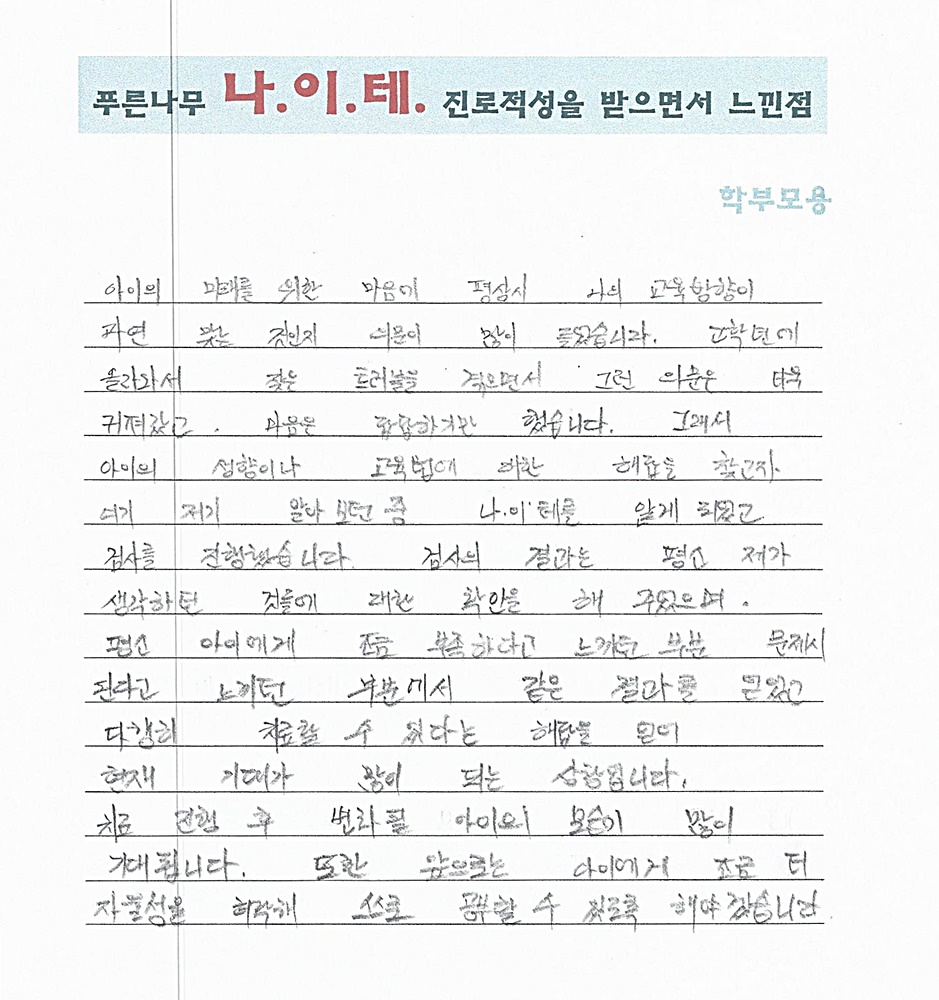 푸른나무 나.이.테. 진로적성을 받으면서 느낀점
학부모용
아이의 미래를 위한 마음에 평상시 나의 교육방향이
과연 맞는 것인지 의문이 많이 들었습니다. 고학년에
올라와서 잦은 트러블을 겪으면서 그런 의문은 더욱
커져갔고. 마음은 답답하기만 했습니다. 그래서
아이의 성향이나 교육법에 대한 해답을 찾고자
여기 저기 알아 보던 중 나.이.테를 알게 되었고
검사를 진행했습니다. 검사의 결과는 평소 제가
생각하던 것들에 대한 확인을 해 주었으며.
평소 아이에게 조금 부족하다고 느끼던 부분 문제시
된다고 느끼던 부분에서 같은 결과를 얻었고
다행히 치료할 수 있다는 해답을 얻어
현재 기대가 많이 되는 상황입니다.
치료 진행 후 변화 될 아이의 모습이 많이
기대됩니다. 또한 앞으로는 아이에게 조금 더
자율성을 허락해 스스로 공부할 수 있도록 해야겠습니다